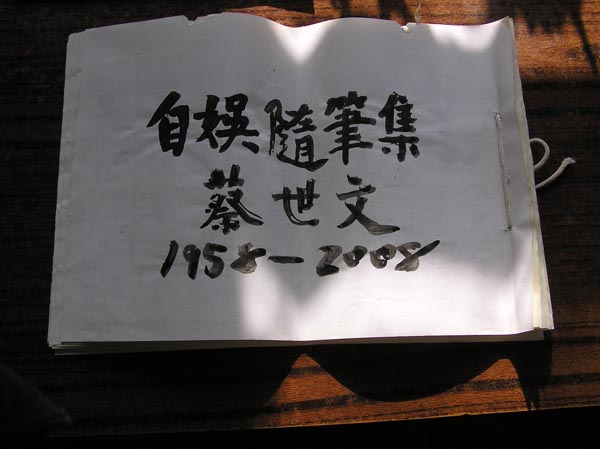 自娛隨筆集
蔡世文
1958-2008